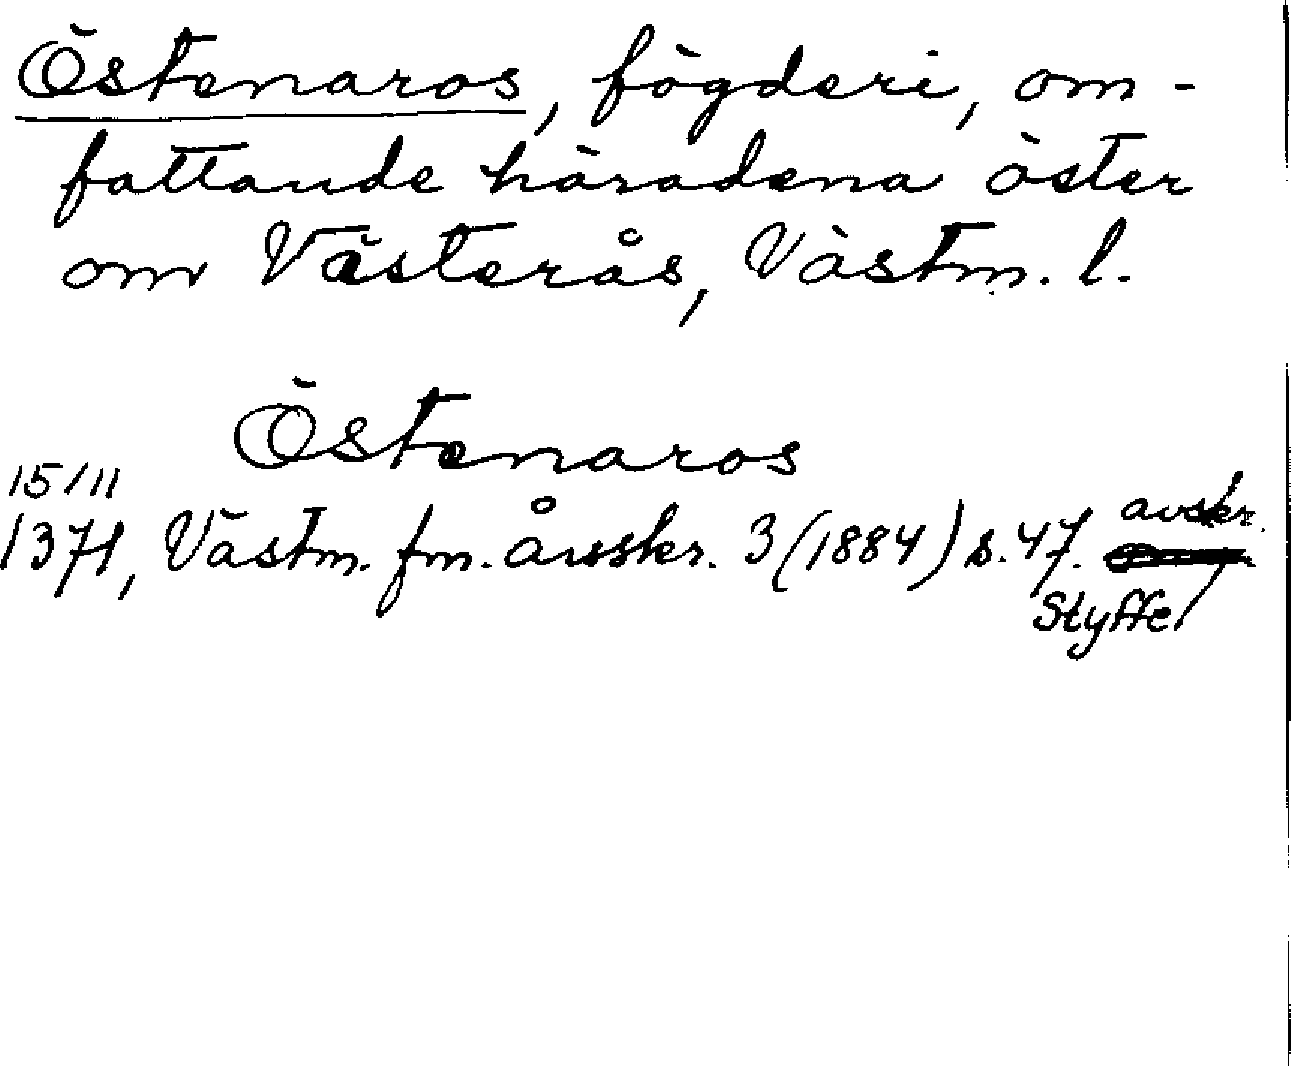 Östenaros, fögderi, om-
fattande häradena öster
om Västerås, Västm. l.
Östenaros
15/11
1371, Västm. fm. årsskr. 3 (1884) s. 47. avskr.
Styffe